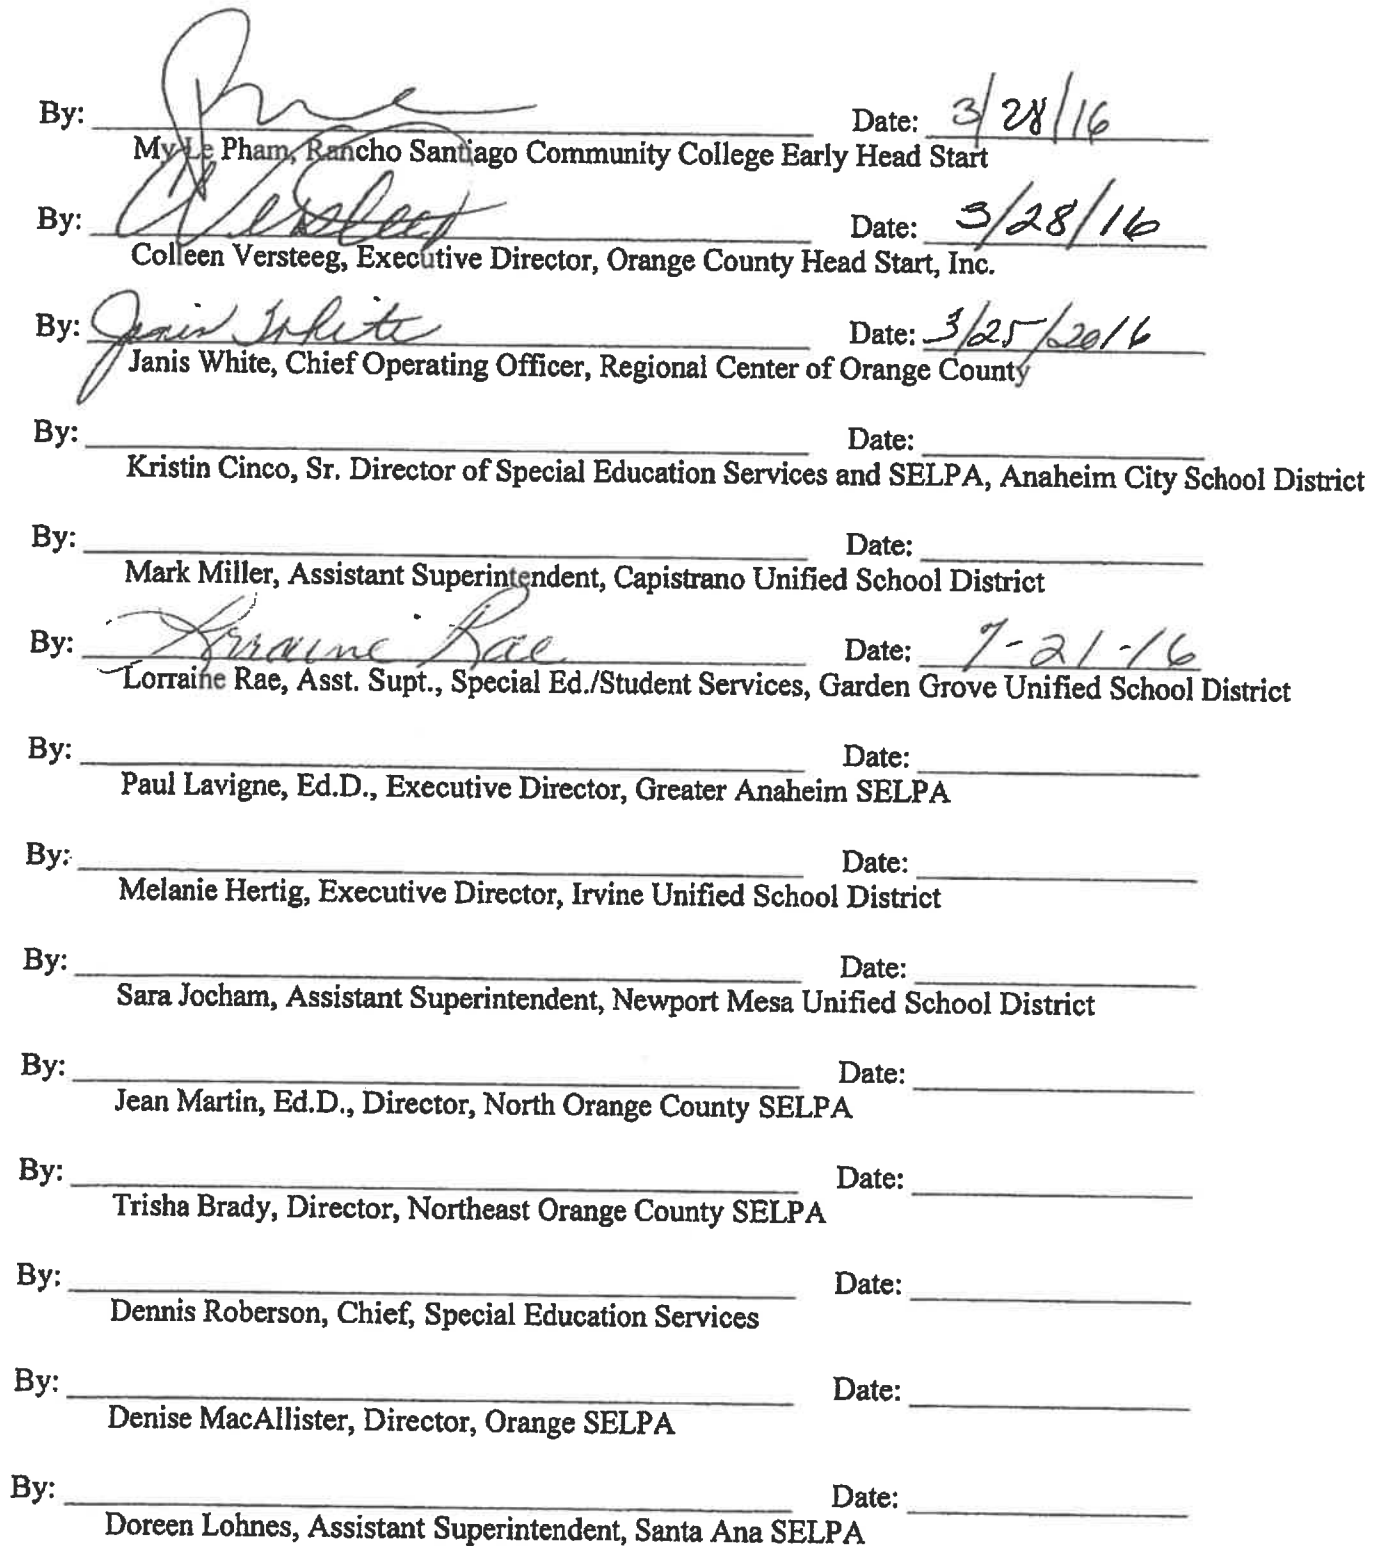 By: Date: 3/28/16
My Le Pham, Rancho Santiago Community College Early Head Start
By: CVersteeg Date: 3/28/16
Colleen Versteeg, Executive Director, Orange County Head Start, Inc.
By: Janis White Date: 3/25/2016
Janis White, Chief Operating Officer, Regional Center of Orange County
By: Date:
Kristin Cinco, Sr. Director of Special Education Services and SELPA, Anaheim City School District
By: Date:
Mark Miller, Assistant Superintendent, Capistrano Unified School District
By: Lorraine Rae Date: 7-21-16
Lorraine Rae, Asst. Supt., Special Ed./Student Services, Garden Grove Unified School District
By: Date:
Paul Lavigne, Ed.D., Executive Director, Greater Anaheim SELPA
By: Date:
Melanie Hertig, Executive Director, Irvine Unified School District
By: Date:
Sara Jocham, Assistant Superintendent, Newport Mesa Unified School District
By: Date:
Jean Martin, Ed.D., Director, North Orange County SELPA
By: Date:
Trisha Brady, Director, Northeast Orange County SELPA
By: Date:
Dennis Roberson, Chief, Special Education Services
By: Date:
Denise MacAllister, Director, Orange SELPA
By: Date:
Doreen Lohnes, Assistant Superintendent, Santa Ana SELPA